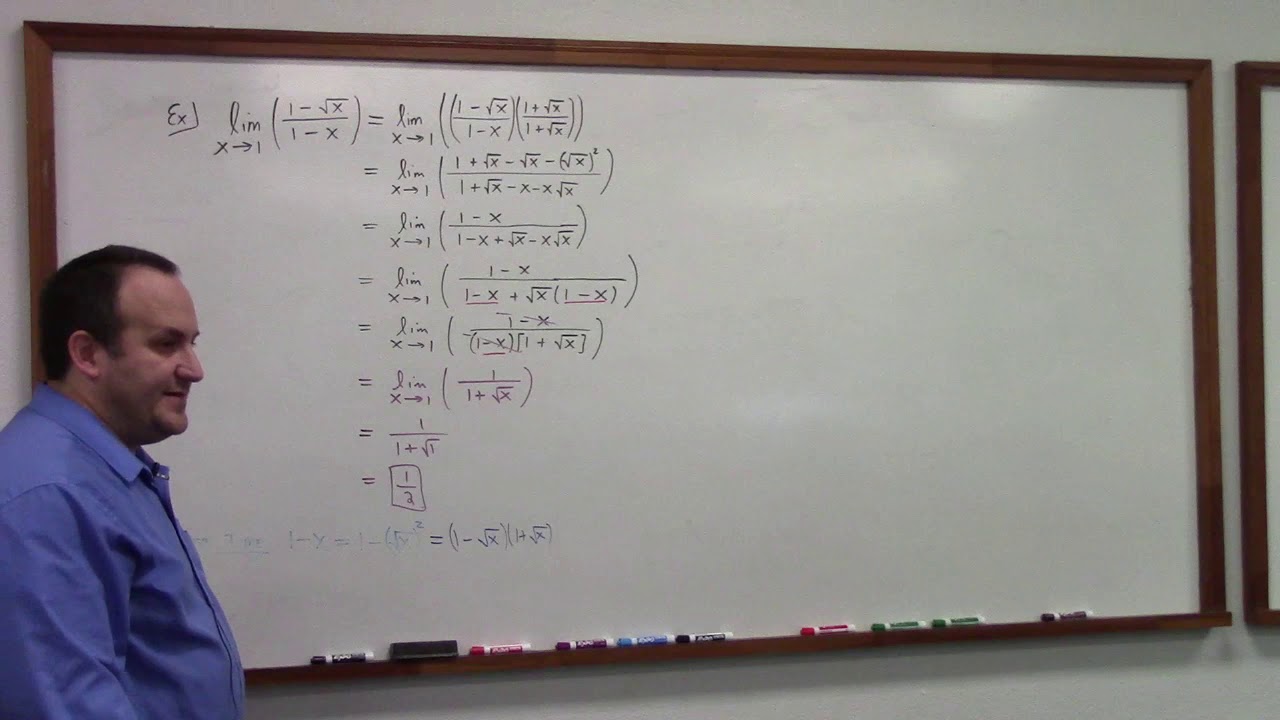 Ex] lim x→1 ((1-√x)/(1-x)) = lim x→1 (((1-√x)/(1-x))((1+√x)/(1+√x)))
= lim x→1 ((1+√x-√x-(√x)²)/(1+√x-x-x√x))
= lim x→1 ((1-x)/(1-x+√x-x√x))
= lim x→1 ((1-x)/(1-x+√x(1-x)))
= lim x→1 ((1-x)/((1-x)[1+√x]))
= lim x→1 (1/(1+√x))
= 1/(1+√1)
= 1/2
1-x = 1-(√x)² = (1-√x)(1+√x)